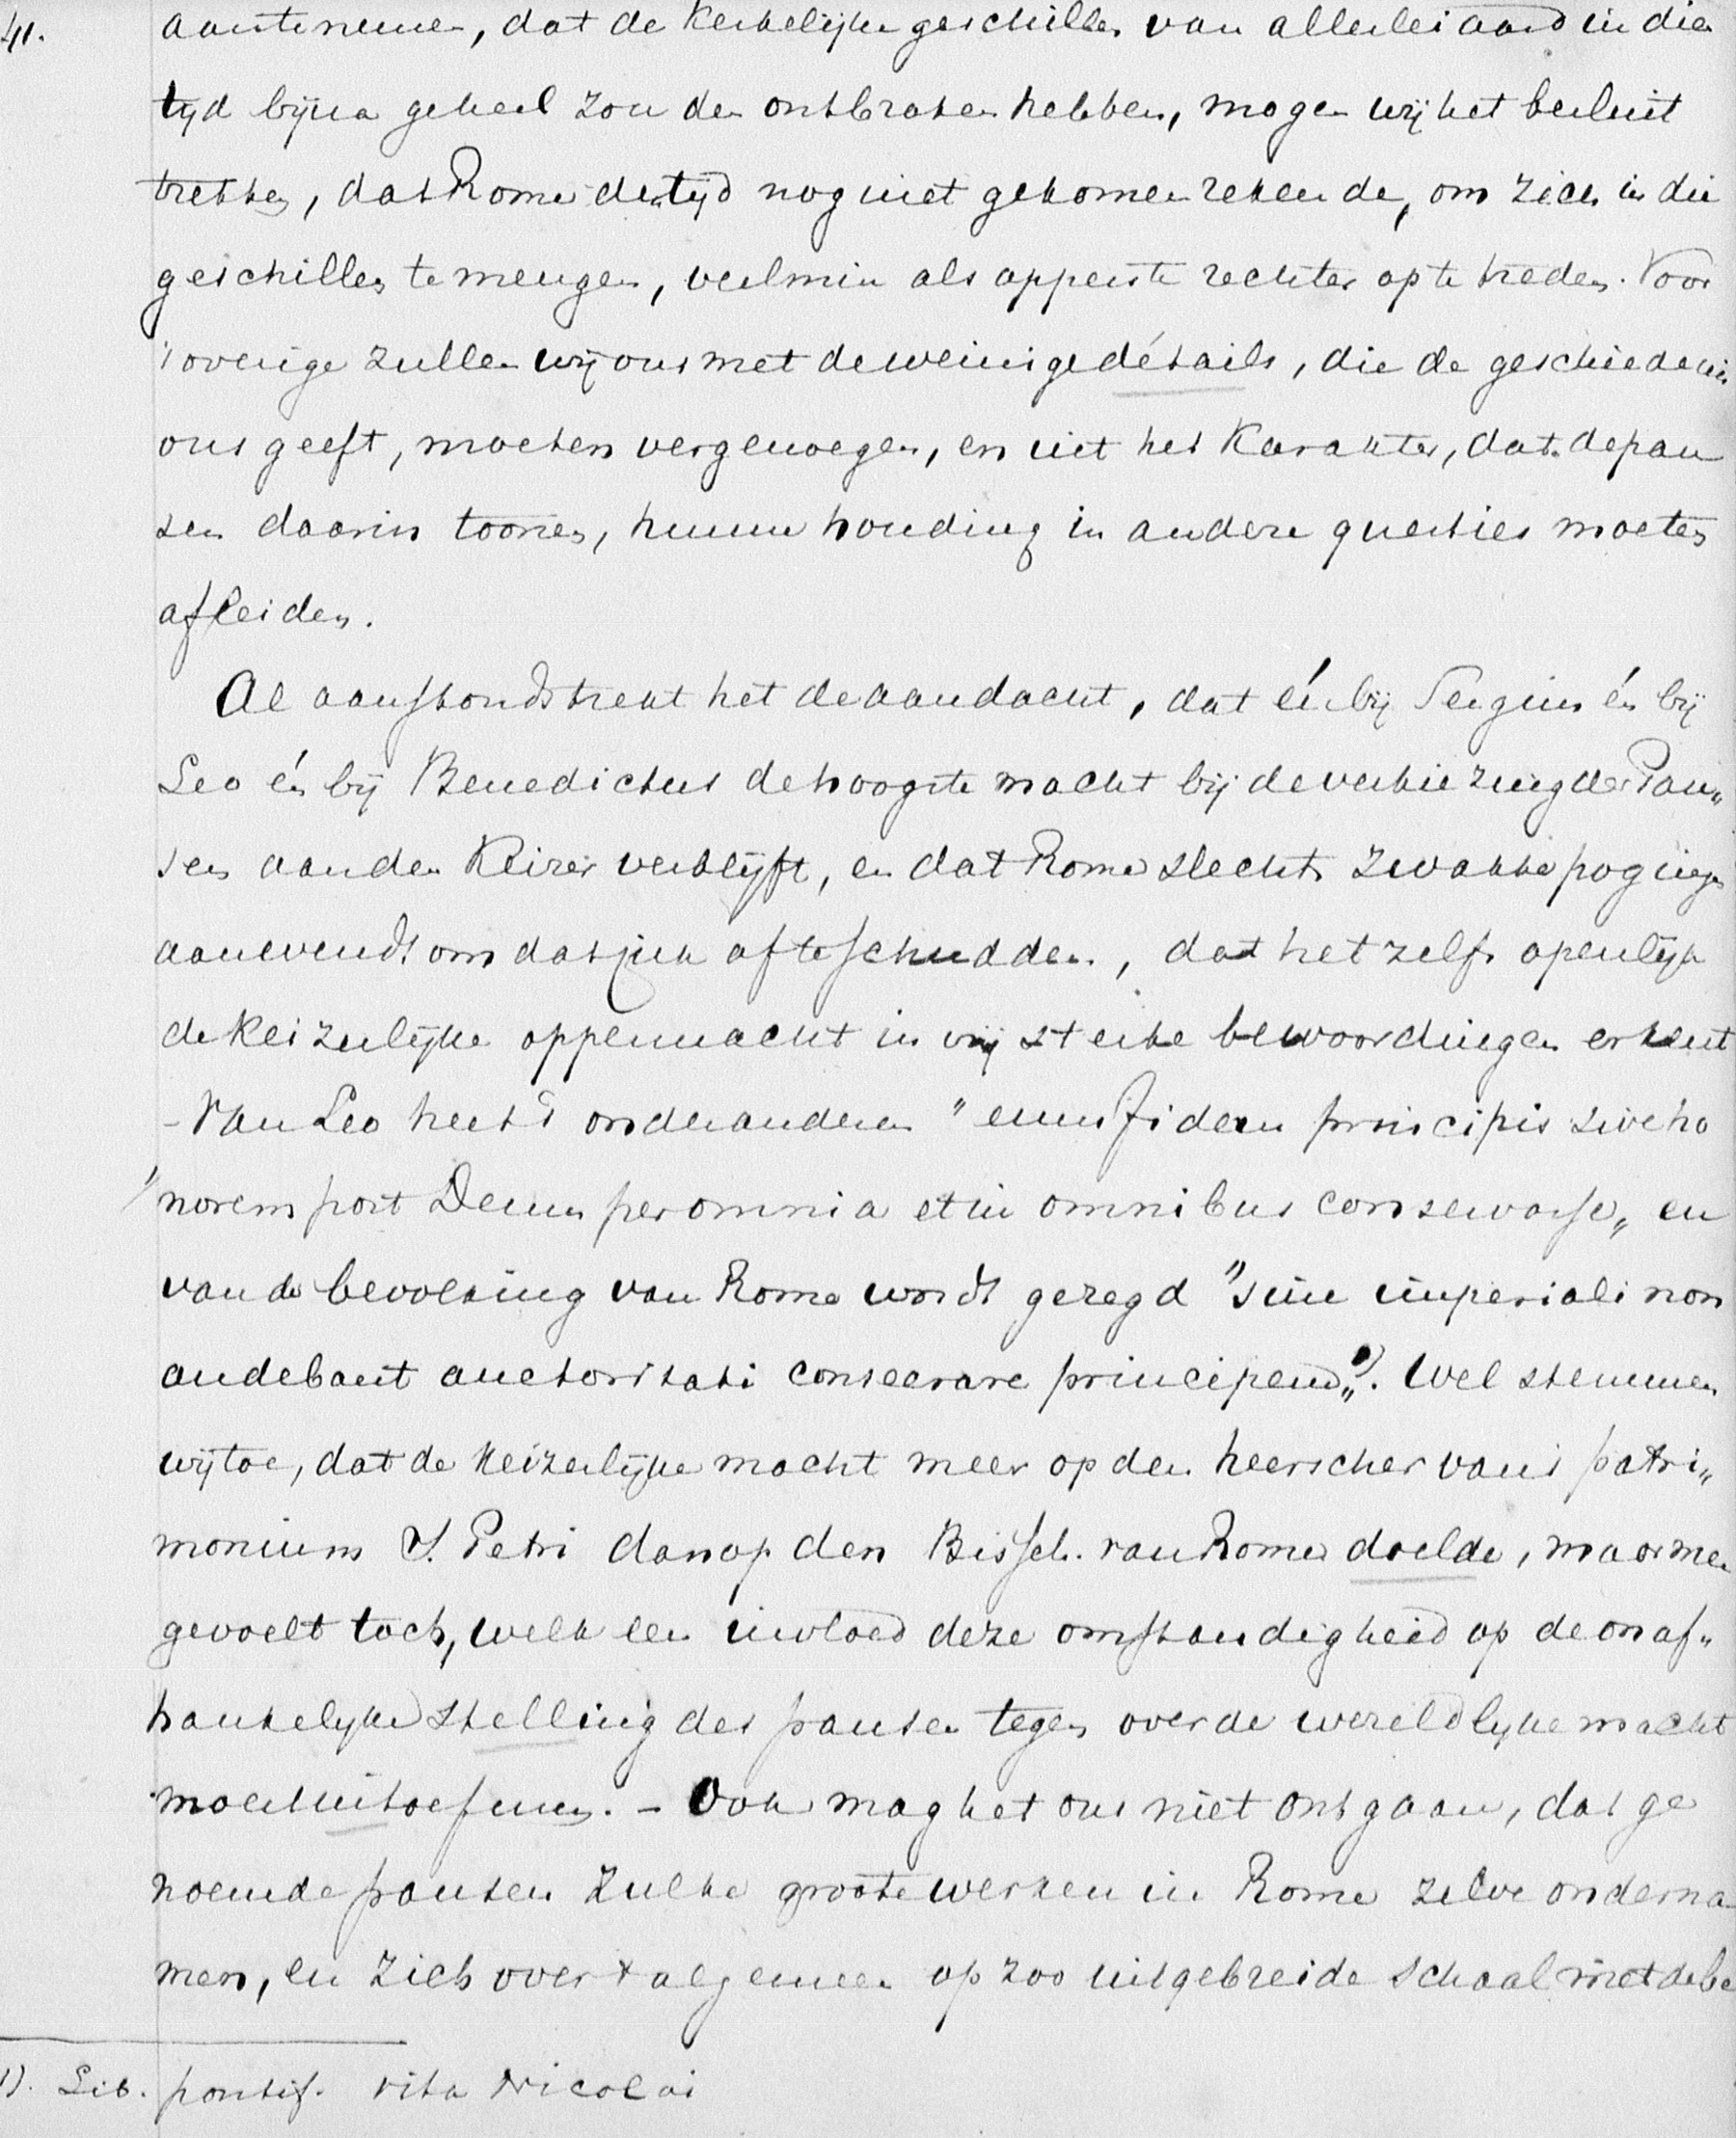 41.
aante nemen, dat de kerkelijke geschillen van allerlei aard in dien
tijd bijna geheel zouden ontbroken hebben, mogen wij het besluit
trekken, dat Rome den tijd nog niet gekomen rekende, om zich in die
geschillen te mengen, veelmin als opperste rechter op te treden. Voor
't overige zullen wij ons met de weinige détails, die de geschiedenis
ons geeft, moeten vergenoegen, en uit het karakter, dat de pau
sen daarin toonen, hunne houding in andere questies moeten
afleiden.
Al aanstonds trekt het de aandacht, dat én bij Sergius én bij
Leo én bij Benedictus de hoogste macht bij de verkiezing der Pau„
sen aan den Keizer verblijft, en dat Rome slechts zwakke pogingen
aanwendt om dat juk af te schudden, dat het zelfs openlijk
de keizerlijke oppermacht in vrij sterke bewoordingen erkent
- Van Leo heet 't onder anderen "eum fidem principis sive ho
"norem post Deum per omnia et in omnibus conservasse„ en
van de bevolking van Rome wordt gezegd "sine imperiali non
audebant auctoritati consecrare principem„ 1). Wel stemmen
wij toe, dat de keizerlijke macht meer op den heerscher van 't patri„
monium S. Petri dan op den Bissch. van Rome doelde, maar men
gevoelt toch, welk een invloed deze omstandigheid op de onaf„
hankelijke stelling des pausen tegen over de wereldlijke macht
moest uitoefenen. - Ook mag het ons niet ontgaan, dat ge
noemde pausen zulke groote werken in Rome zelve onderna
men, en zich over 't algemeen op zoo uitgebreide schaal met de be
1). Lib. pontif. vita Nicolai